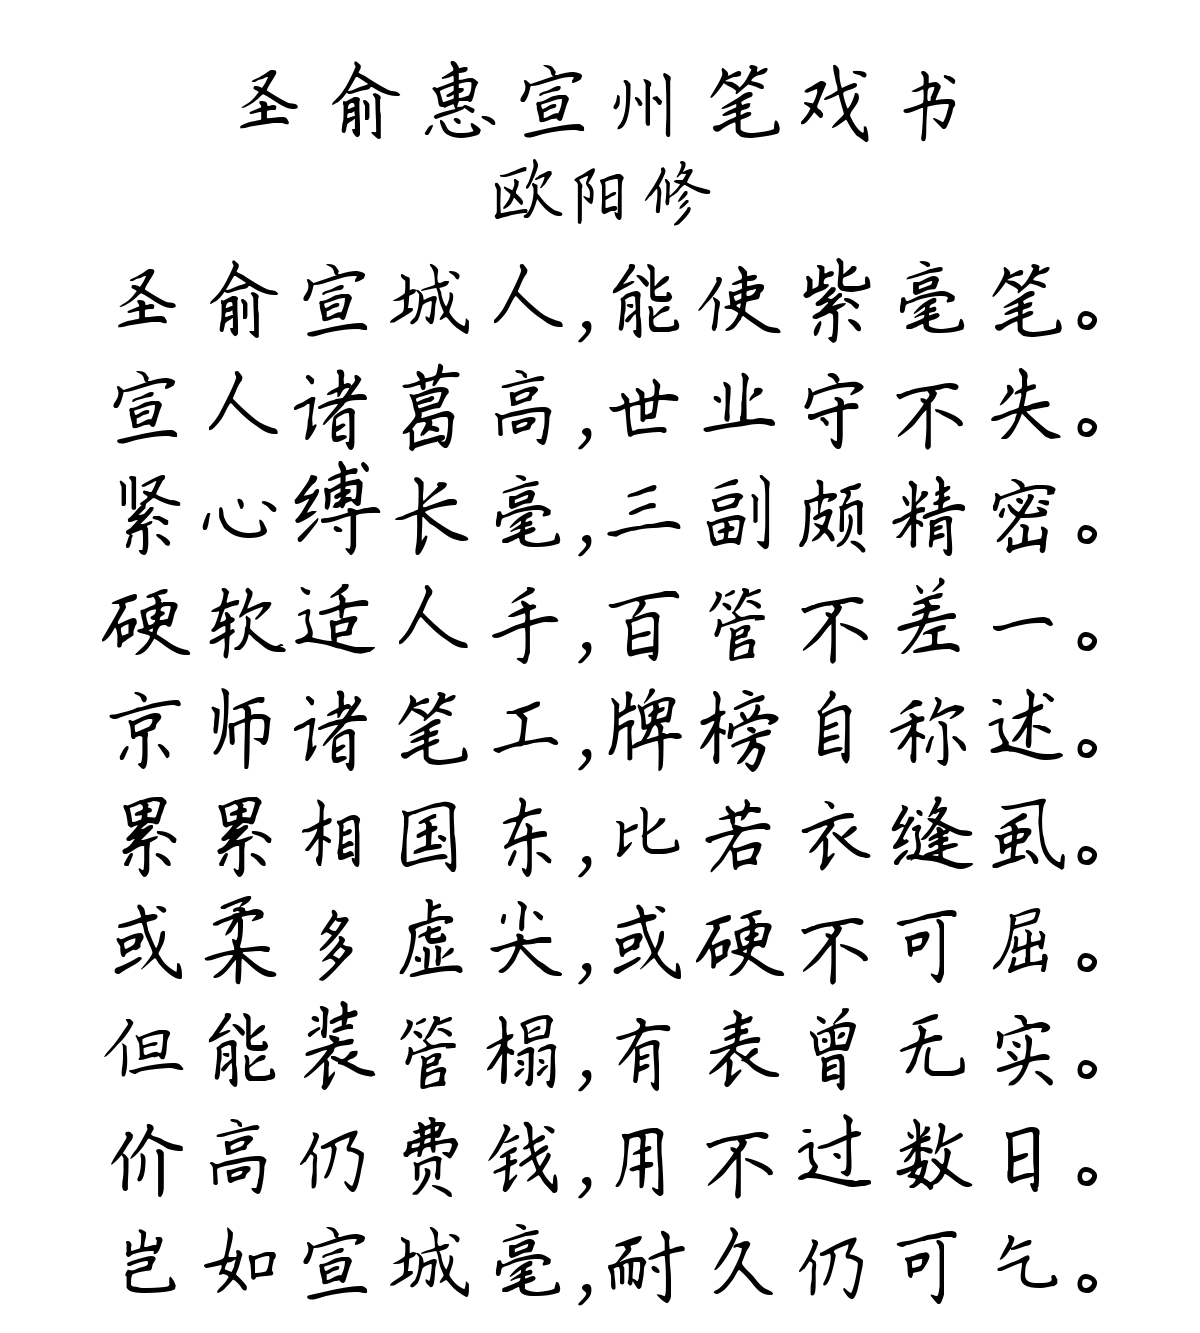 圣俞惠宣州笔戏书
欧阳修
圣俞宣城人,能使紫毫笔。
宣人诸葛高,世业守不失。
紧心缚长毫,三副颇精密。
硬软适人手,百管不差一。
京师诸笔工,牌榜自称述。
累累相国东,比若衣缝虱。
或柔多虚尖,或硬不可屈。
但能装管榻,有表曾无实。
价高仍费钱,用不过数日。
岂如宣城毫,耐久仍可乞。